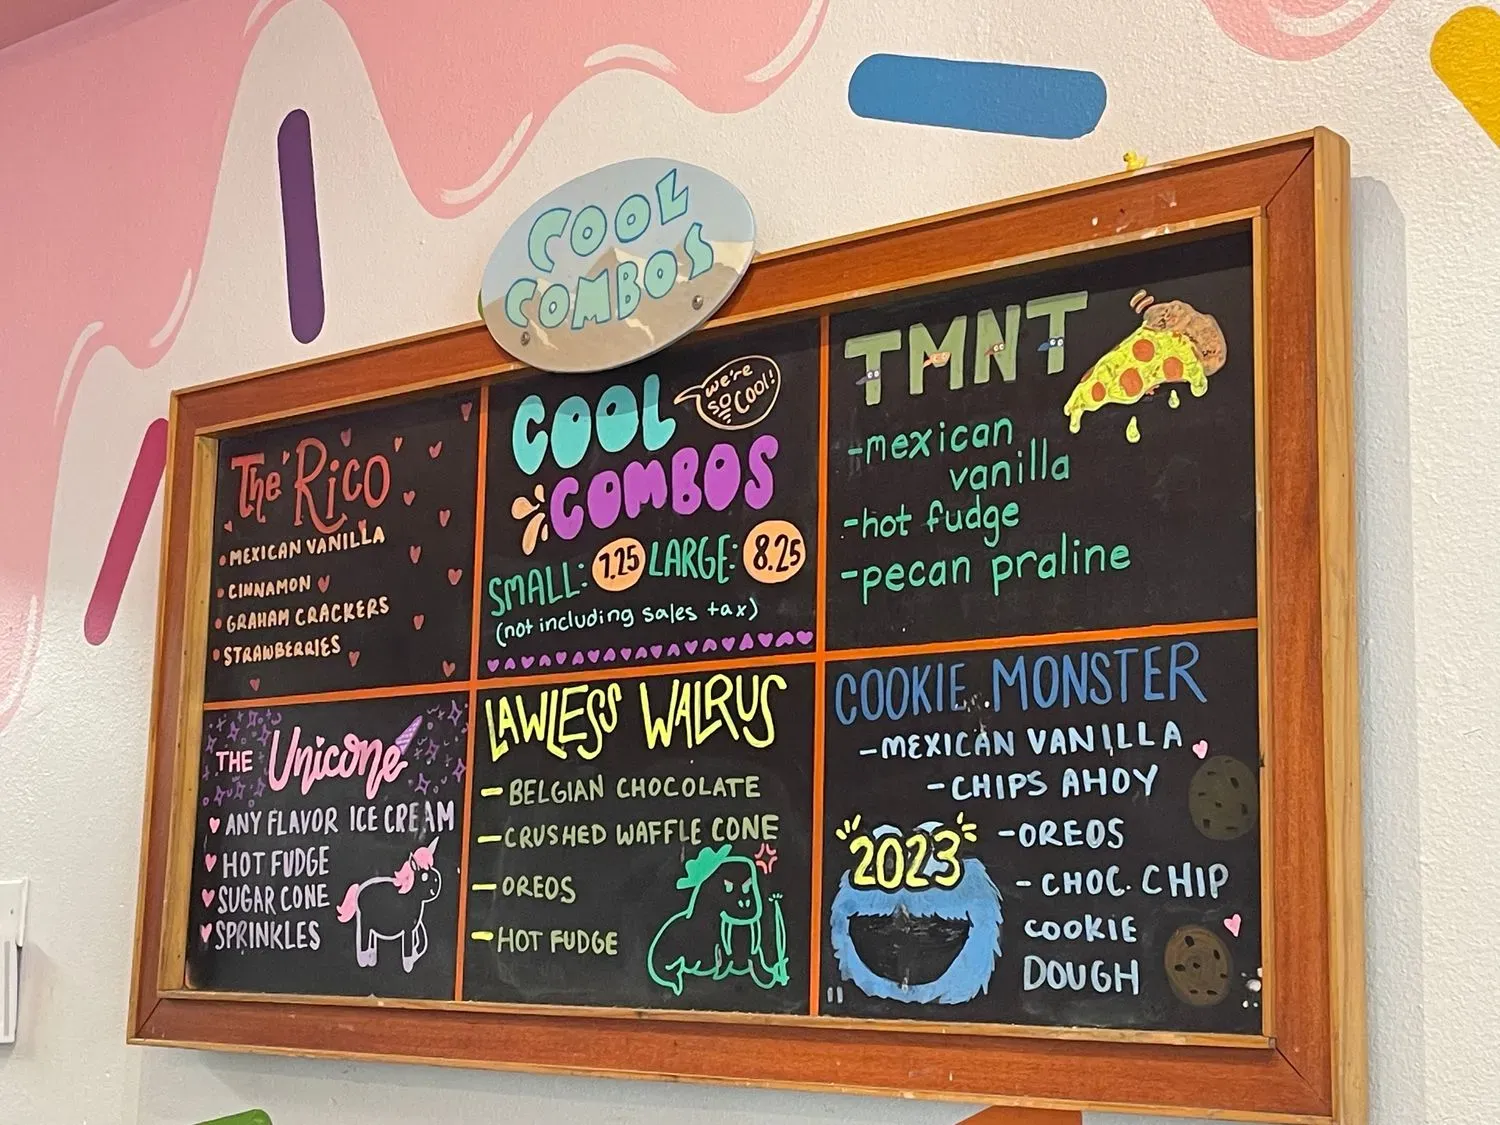 COOL
COMBOS
The Rico
MEXICAN VANILLA
CINNAMON
GRAHAM CRACKERS
STRAWBERRIES
COOL
COMBOS
we're
so
cool!
SMALL: 7.25 LARGE: 8.25
(not including sales tax)
TMNT
-mexican
vanilla
-hot fudge
-pecan praline
THE Unicone
ANY FLAVOR ICE CREAM
HOT FUDGE
SUGAR CONE
SPRINKLES
LAWLESS WALRUS
- BELGIAN CHOCOLATE
- CRUSHED WAFFLE CONE
- OREOS
- HOT FUDGE
COOKIE MONSTER
-MEXICAN VANILLA
-CHIPS AHOY
-OREOS
-CHOC. CHIP
COOKIE
DOUGH
2023